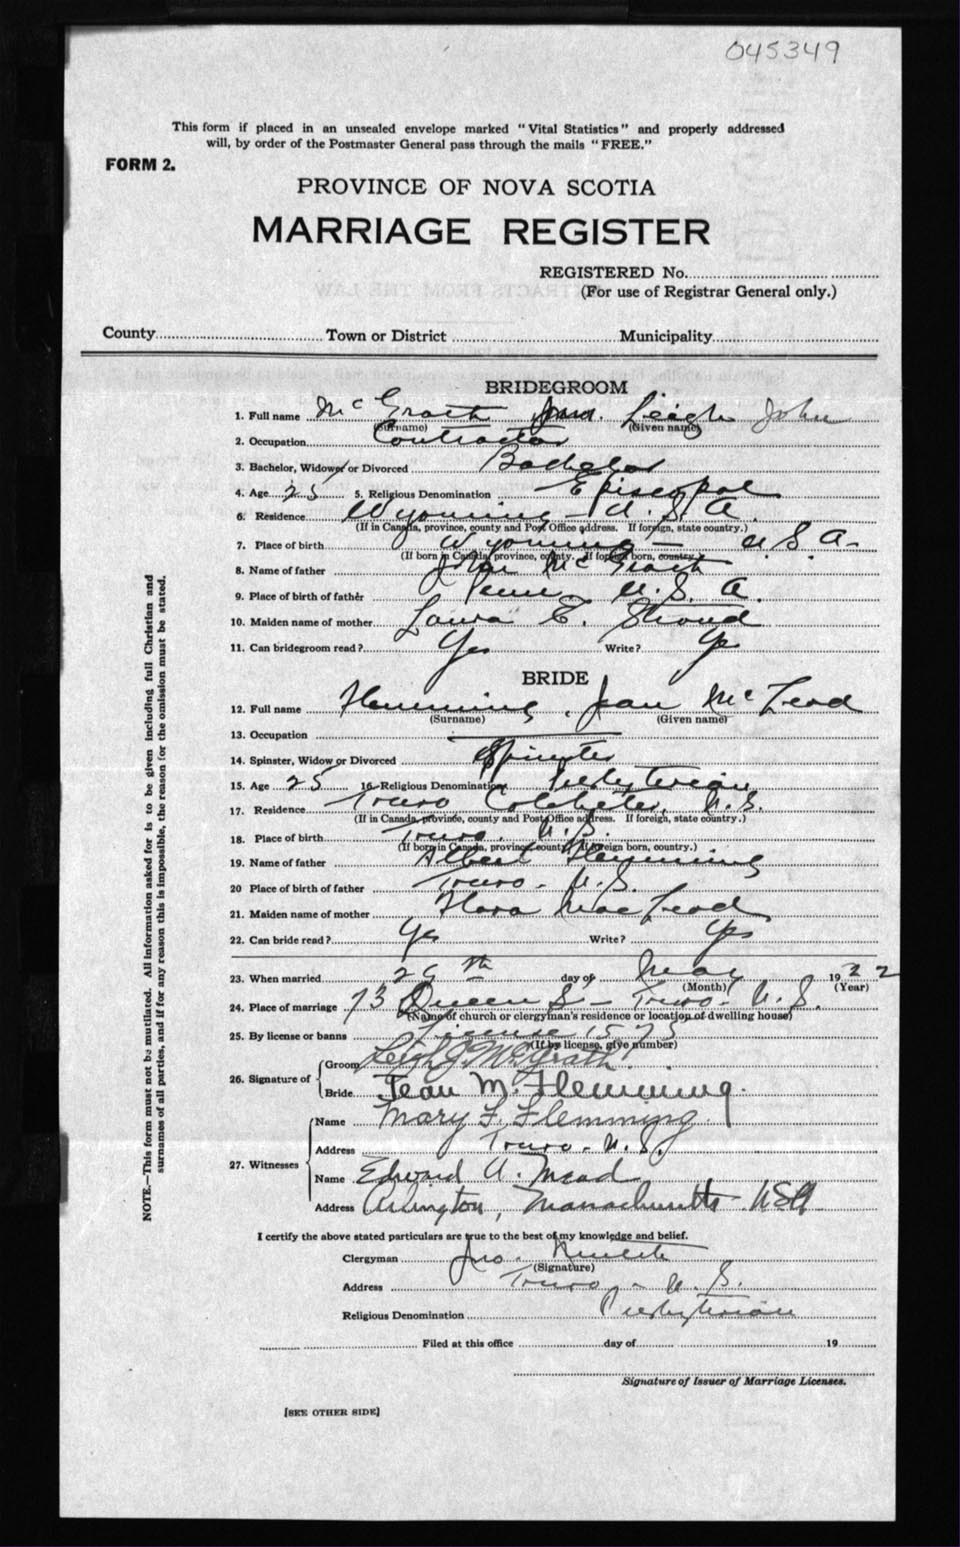 045349
This form if placed in an unsealed envelope marked "Vital Statistics" and properly addressed
will, by order of the Postmaster General pass through the mails "FREE."
FORM 2.
PROVINCE OF NOVA SCOTIA
MARRIAGE REGISTER
REGISTERED No.
(For use of Registrar General only.)
County Town or District Municipality
BRIDEGROOM
1. Full name McGrath Leigh John
(Surname) (Given name)
2. Occupation Contractor
3. Bachelor, Widower or Divorced Bachelor
4. Age 25 5. Religious Denomination Episcopal
6. Residence Wyoming - U.S.A.
(If in Canada, province, county and Post Office address. If foreign, state country.)
7. Place of birth Wyoming - U.S.A-
(If born in Canada, province, county. If foreign born, country.)
8. Name of father John McGrath
9. Place of birth of father Penn. U.S.A.
10. Maiden name of mother Laura E. Stroud
11. Can bridegroom read? Yes Write? Yes
BRIDE
12. Full name Flemming, Jean McLeod
(Surname) (Given name)
13. Occupation
14. Spinster, Widow or Divorced Spinster
15. Age 25 16. Religious Denomination Presbyterian
17. Residence Truro Colchester, N.S.
(If in Canada, province, county and Post Office address. If foreign, state country.)
18. Place of birth Truro. N.S.
(If born in Canada, province, county. If foreign born, country.)
19. Name of father Albert Flemming
20 Place of birth of father Truro - N.S.
21. Maiden name of mother Flora MacLeod
22. Can bride read? Yes Write? Yes
23. When married th day of May 1922
(Month) (Year)
24. Place of marriage 73 Queen S - Truro - N.S.
(Name of church or clergyman's residence or location of dwelling house)
25. By license or banns License 1573
(If by license, give number)
26. Signature of
Groom Leigh J. McGrath
Bride Jean M. Flemming.
27. Witnesses
Name Mary F. Flemming
Address Truro - N.S.
Name Edward A. Mead
Address Arlington, Massachusetts USA
I certify the above stated particulars are true to the best of my knowledge and belief.
Clergyman Jno.
(Signature)
Address Truro - N.S.
Religious Denomination Presbyterian
Filed at this office day of 19
Signature of Issuer of Marriage Licenses.
[SEE OTHER SIDE]
NOTE.—This form must not be mutilated. All information asked for is to be given including full Christian and
surnames of all parties, and if for any reason this is impossible, the reason for the omission must be stated.